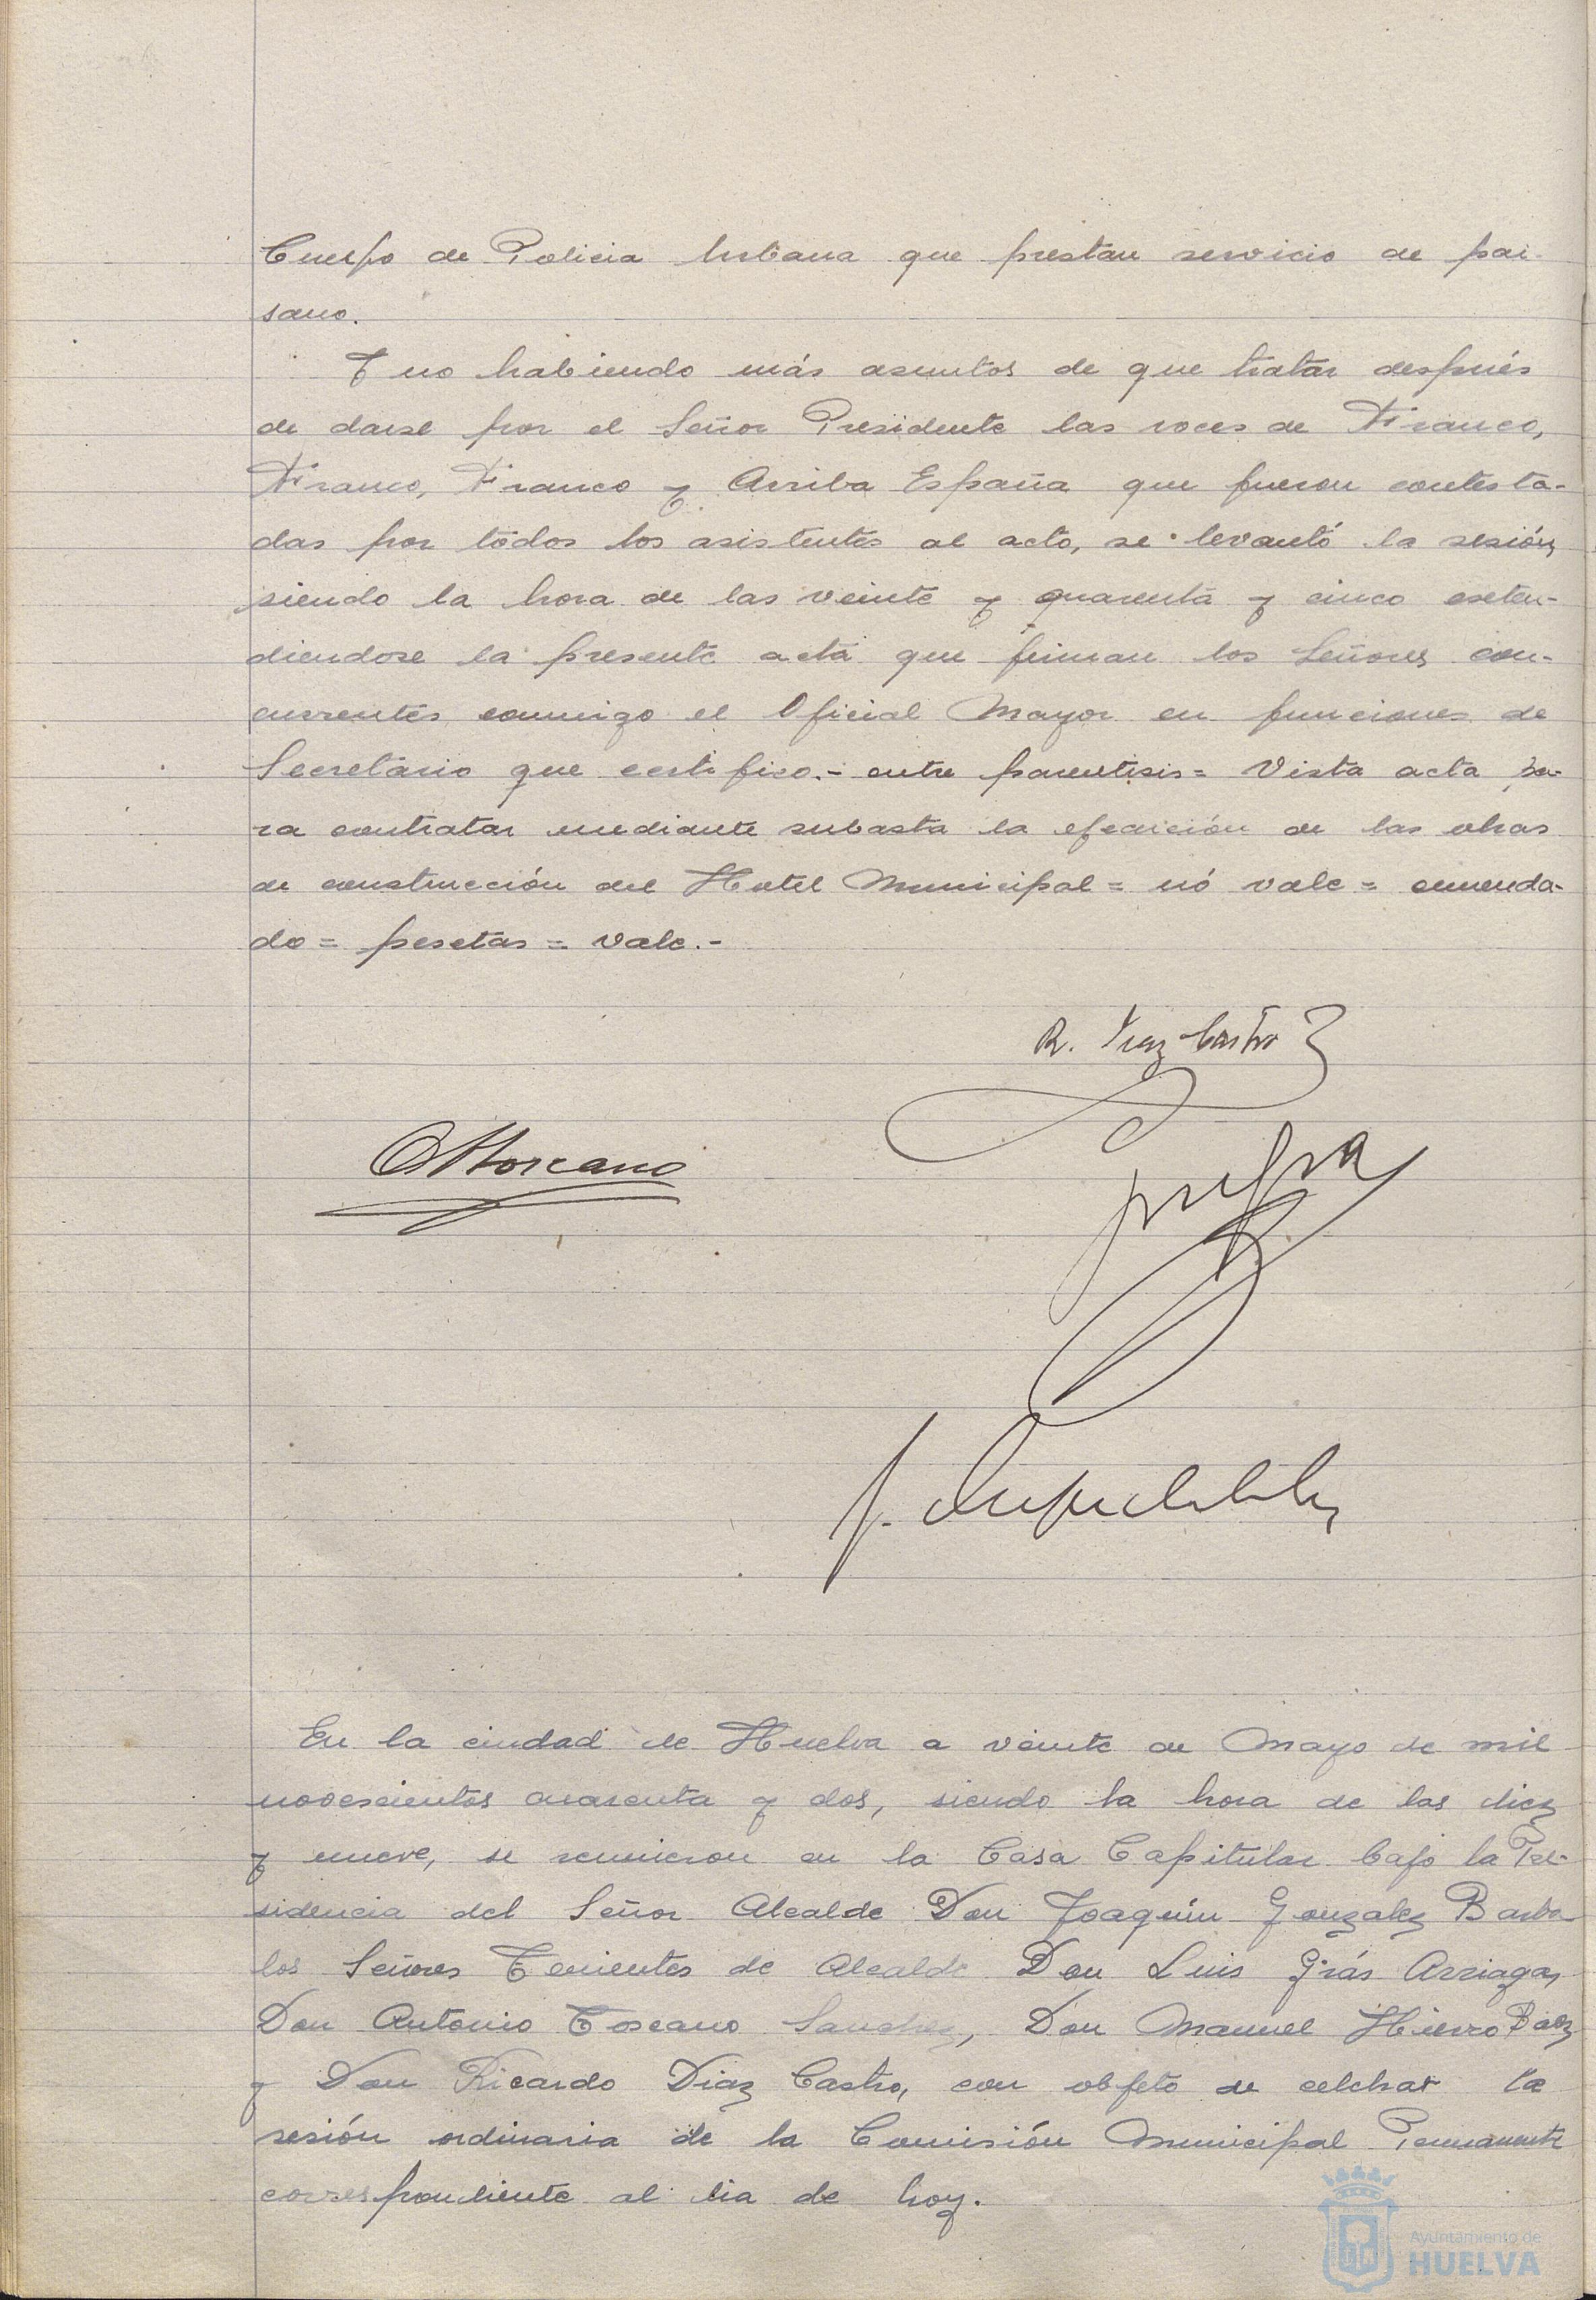 Cuerpo de Policia Urbana que prestan servicio de pai-
sano.
Y no habiendo más asuntos de que tratar después
de darse por el Señor Presidente las voces de Franco,
Franco, Franco y Arriba España que fueron contesta-
das por todos los asistentes al acto, se levantó la sesión,
siendo la hora de las veinte y quarenta y cinco exten-
diendose la presente acta que firman los Señores con-
currentes conmigo el Oficial Mayor en funciones de
Secretario que certifico.- entre parentisis = Vista acta pa-
ra contratar mediante subasta la ejecición de las obras
de construcción del Hotel Municipal = nó vale = enmenda-
do = pesetas = vale.-
R. Diaz Castro
AToscano
En la ciudad de Huelva a veinte de Mayo de mil
novescientos cuarenta y dos, siendo la hora de las diez
y nueve, se reunieron en la Casa Capitular bajo la Pre-
sidencia del Señor Alcalde Don Joaquín Gonzalez Barba
los Señores Tenientes de Alcalde Don Luis Grás Arriaga,
Don Antonio Toscano Sanchez, Don Manuel Hierro Baez
y Don Ricardo Diaz Castro, con objeto de celebrar la
sesión ordinaria de la Comisión Municipal Permanente
correspondiente al dia de hoy.
Ayuntamiento de
HUELVA